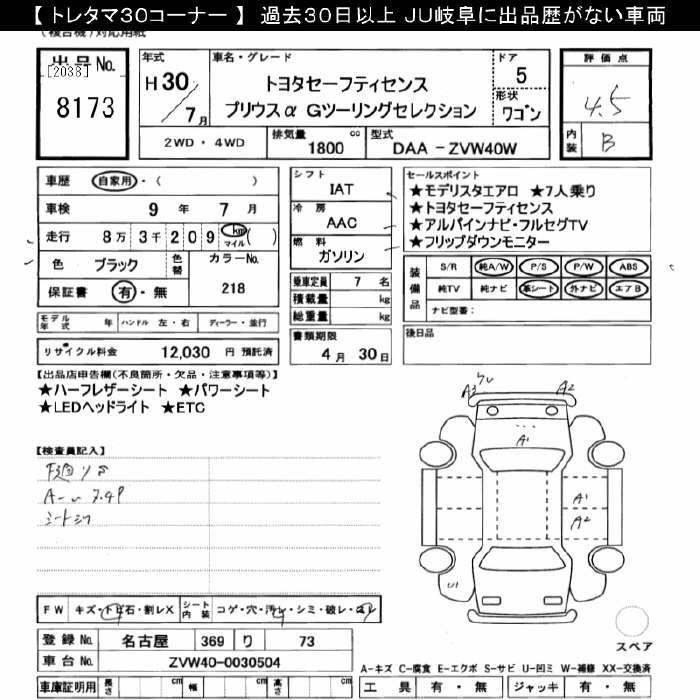 【 トレタマ30コーナー 】 過去30日以上 JU岐阜に出品歴がない車両
出品No.
[2038]
8173
年式
H 30
7月
車名・グレード
トヨタセーフティセンス
プリウスα Gツーリングセレクション
ドア
5
形状
ワゴン
評価点
4.5
内装
B
2WD ・ 4WD
排気量
1800 cc
型式
DAA－ZVW40W
車歴 自家用・( )
車検 9 年 7 月
走行 8万 3千 2 0 9 km マイル ( )
色 ブラック 色替 カラーNo.
保証書 有・無 218
モデル年式 年 ハンドル 左・右 ディーラー・並行
リサイクル料金 12,030 円 預託済
シフト
IAT
冷房
AAC
燃料
ガソリン
乗車定員 7 名
積載量 kg
総重量 kg
書類期限
4 月 30 日
セールスポイント
★モデリスタエアロ ★7人乗り
★トヨタセーフティセンス
★アルパインナビ・フルセグTV
★フリップダウンモニター
装備品
S/R 純A/W P/S P/W ABS
純TV 純ナビ 革シート 外ナビ エアB
ナビ型番：
後日品
【出品店申告欄(不良箇所・欠品・注意事項等)】
★ハーフレザーシート ★パワーシート
★LEDヘッドライト ★ETC
【検査員記入】
シートシワ
A3
A2
A1
A1
A2
U1
FW キズ・トビ石・割レX シート内装 コゲ・穴・汚レ・シミ・破レ・スレ
登録No. 名古屋 369 り 73
車台No. ZVW40-0030504
車庫証明用 長さ cm 幅 cm 高さ cm
スペア
A-キズ C-腐食 E-エクボ S-サビ U-凹ミ W-補修 XX-交換済
工具 有・無 ジャッキ 有・無